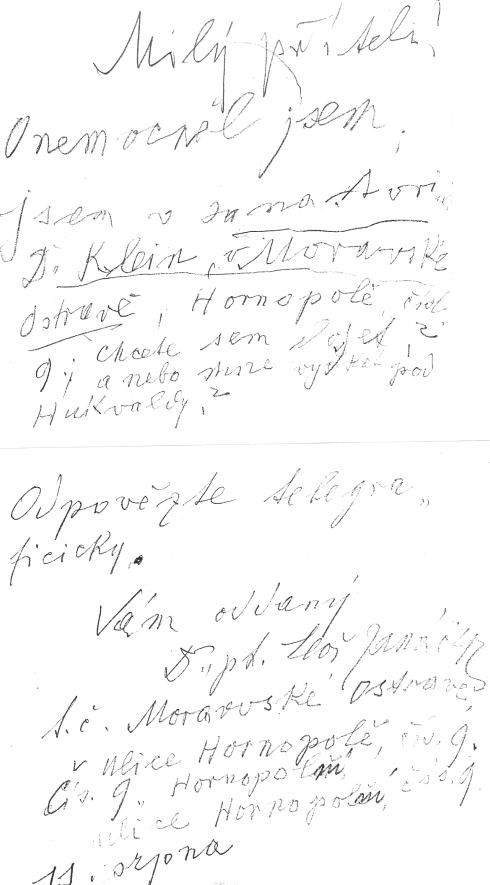 Milý příteli!
Onemocněl jsem,
jsem v sanatori
Dr. Klein, v Moravské
Ostravě, Hornopolě, čísl
9; chcete sem dojet,?
a nebo snese vyčkat pod
Hukvaldy,?
Odpovězte telegra„
ficicky.
Vám oddaný
Dr. ph. Leoš Janáček
t.č. Moravské Ostravě,
v ulice Hornopolě, čís. 9.
Čís. 9„ Hornopolní
ulice Hornopolní, čís. 9.
11. srpna